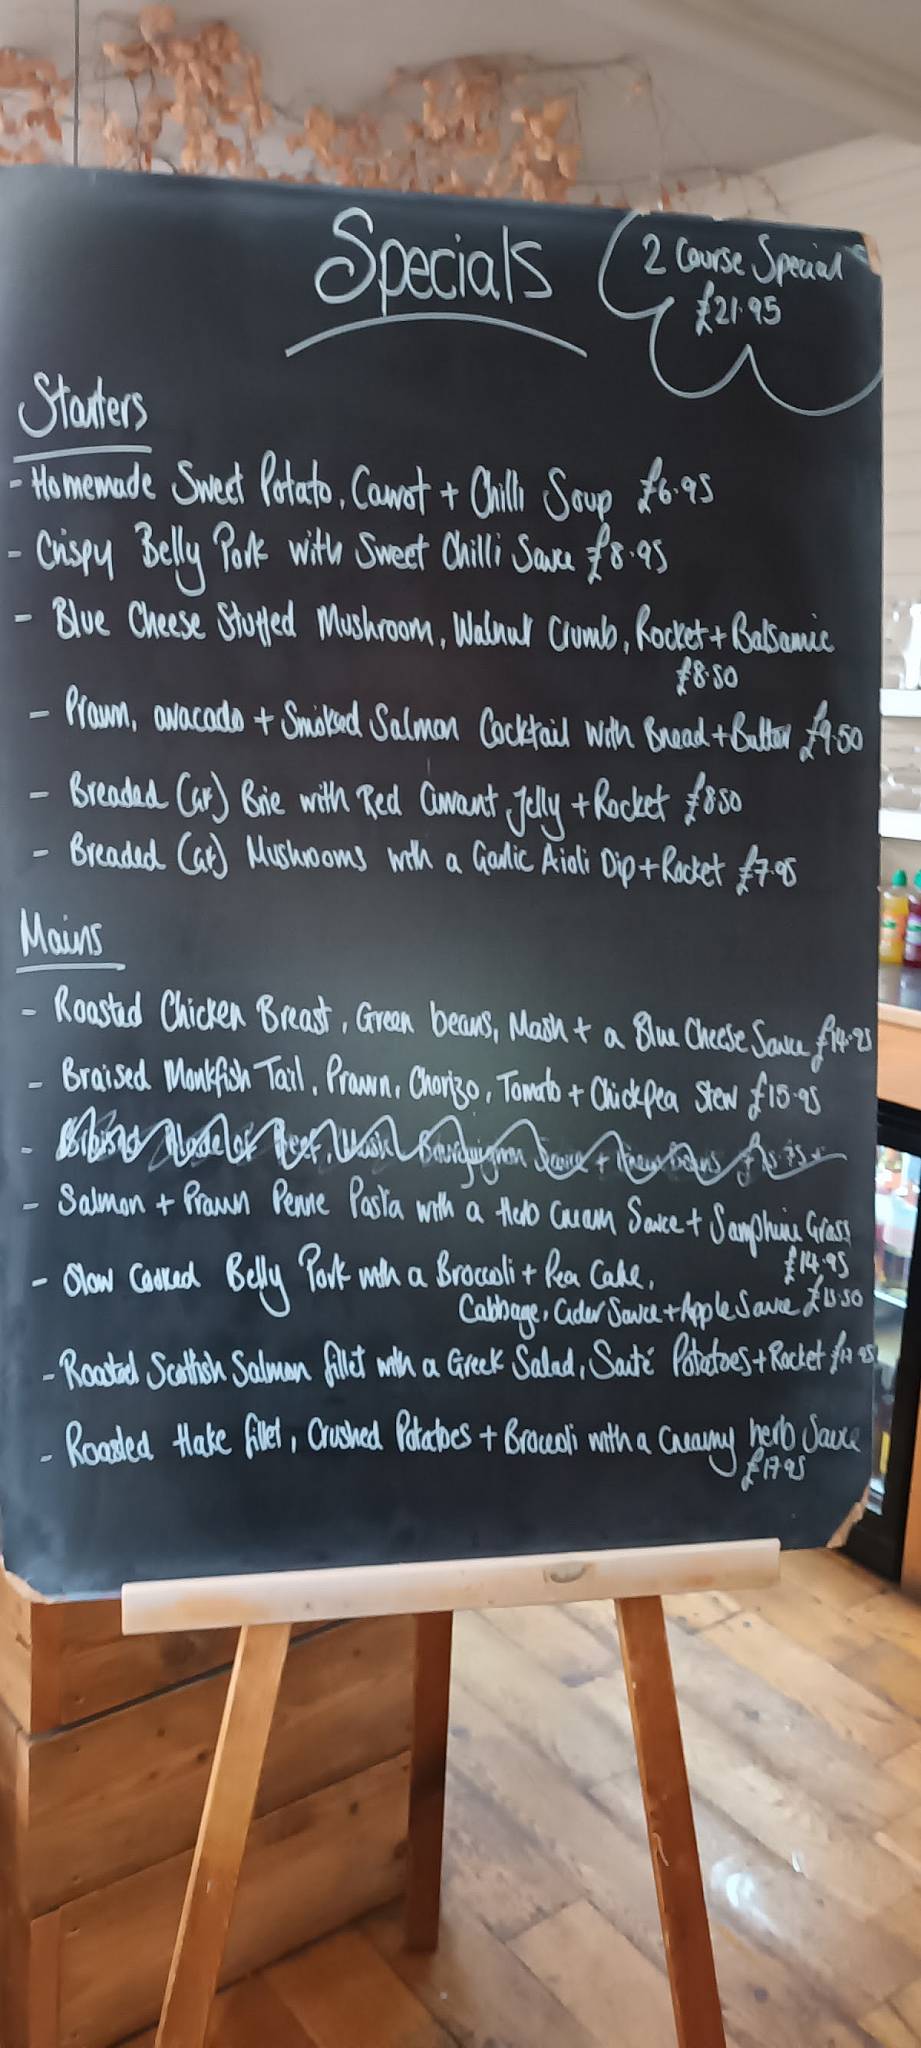 Specials
2 Course Special
£21.95
Starters
- Homemade Sweet Potato, Carrot + Chilli Soup £6.95
- Crispy Belly Pork with Sweet Chilli Sauce £8.95
- Blue Cheese Stuffed Mushroom, Walnut Crumb, Rocket + Balsamic
£8.50
- Prawn, avacado + Smoked Salmon Cocktail with Bread + Butter £9.50
- Breaded (GF) Brie with Red Currant Jelly + Rocket £8.50
- Breaded (GF) Mushrooms with a Garlic Aioli Dip + Rocket £7.95
Mains
- Roasted Chicken Breast, Green beans, Mash + a Blue Cheese Sauce £14.95
- Braised Monkfish Tail, Prawn, Chorizo, Tomato + Chickpea Stew £15.95
- Blade of Beef, Mash, Bourguignon Sauce +
- Salmon + Prawn Penne Pasta with a Herb Cream Sauce + Samphire Grass
£14.95
- Slow Cooked Belly Pork with a Broccoli + Pea Cake,
Cabbage, Cider Sauce + Apple Sauce
- Roasted Scottish Salmon fillet with a Greek Salad, Sauté Potatoes + Rocket
- Roasted Hake fillet, Crushed Potatoes + Broccoli with a Creamy herb Sauce
£17.95